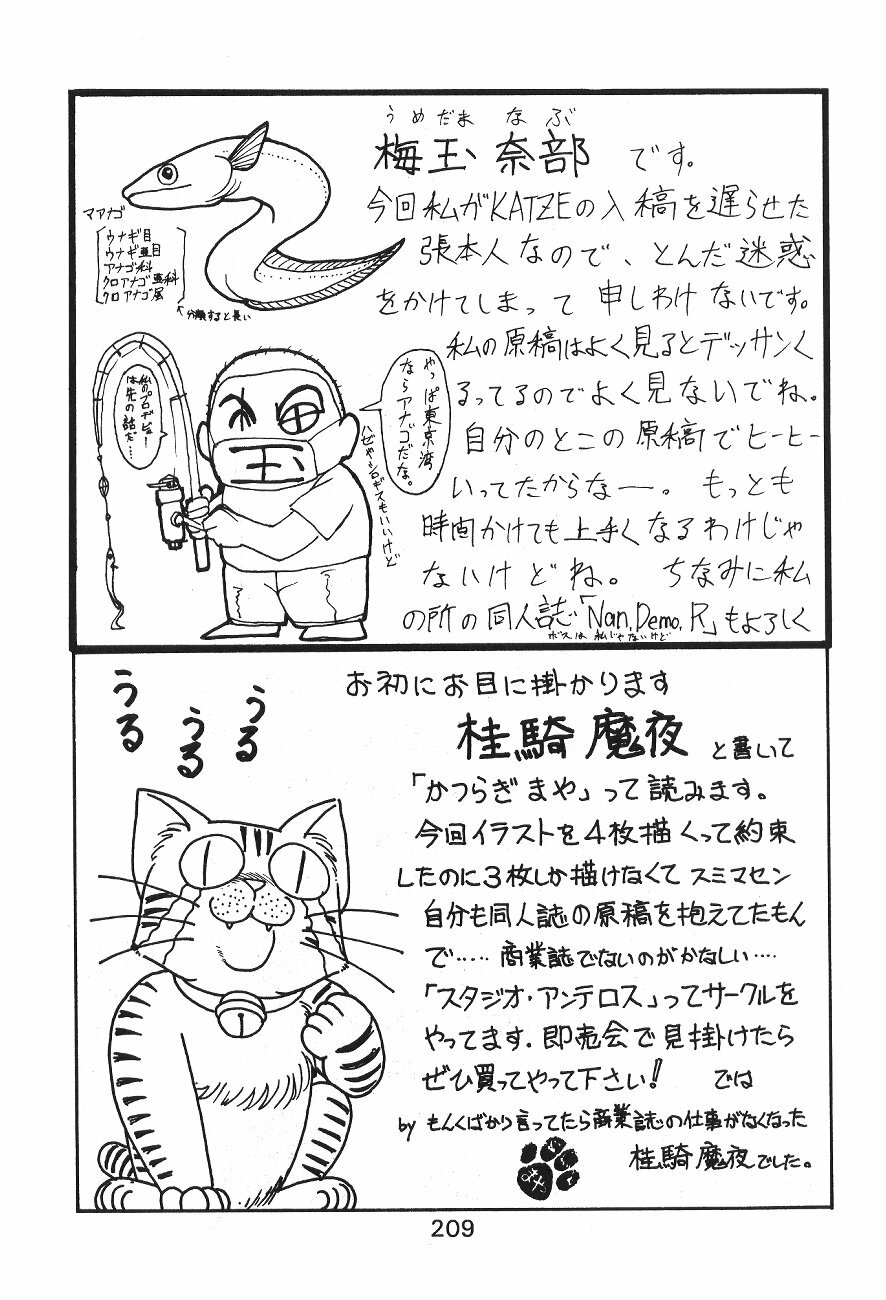 うめだま なぶ
梅玉 奈部 です。
今回私がKATZEの入稿を遅らせた
張本人なので、とんだ迷惑
をかけてしまって申しわけないです。
私の原稿はよく見るとデッサンく
るってるのでよく見ないでね。
自分のとこの原稿でヒーヒー
いってたからなー。もっとも
時間かけても上手くなるわけじゃ
ないけどね。ちなみに私
の所の同人誌「Nan,Demo,R」もよろしく
ボスは私じゃないけど
マアナゴ
ウナギ目
ウナギ亜目
アナゴ科
クロアナゴ亜科
クロアナゴ属
分類すると長い
やっぱ東京湾
ならアナゴだな。
ハゼやシロギスもいいけど
私のプロデビュー
は先の話だ…
梅
田
玉
うる
うる
うる
お初にお目に掛かります
桂騎魔夜 と書いて
「かつらぎまや」って読みます。
今回イラストを4枚描くって約束
したのに3枚しか描けなくてスミマセン
自分も同人誌の原稿を抱えてたもん
で…… 商業誌でないのがかなしい……
「スタジオ・アンテロス」ってサークルを
やってます。即売会で見掛けたら
ぜひ買ってやって下さい! では
by もんくばかり言ってたら商業誌の仕事がなくなった
桂騎魔夜でした。
まや
209